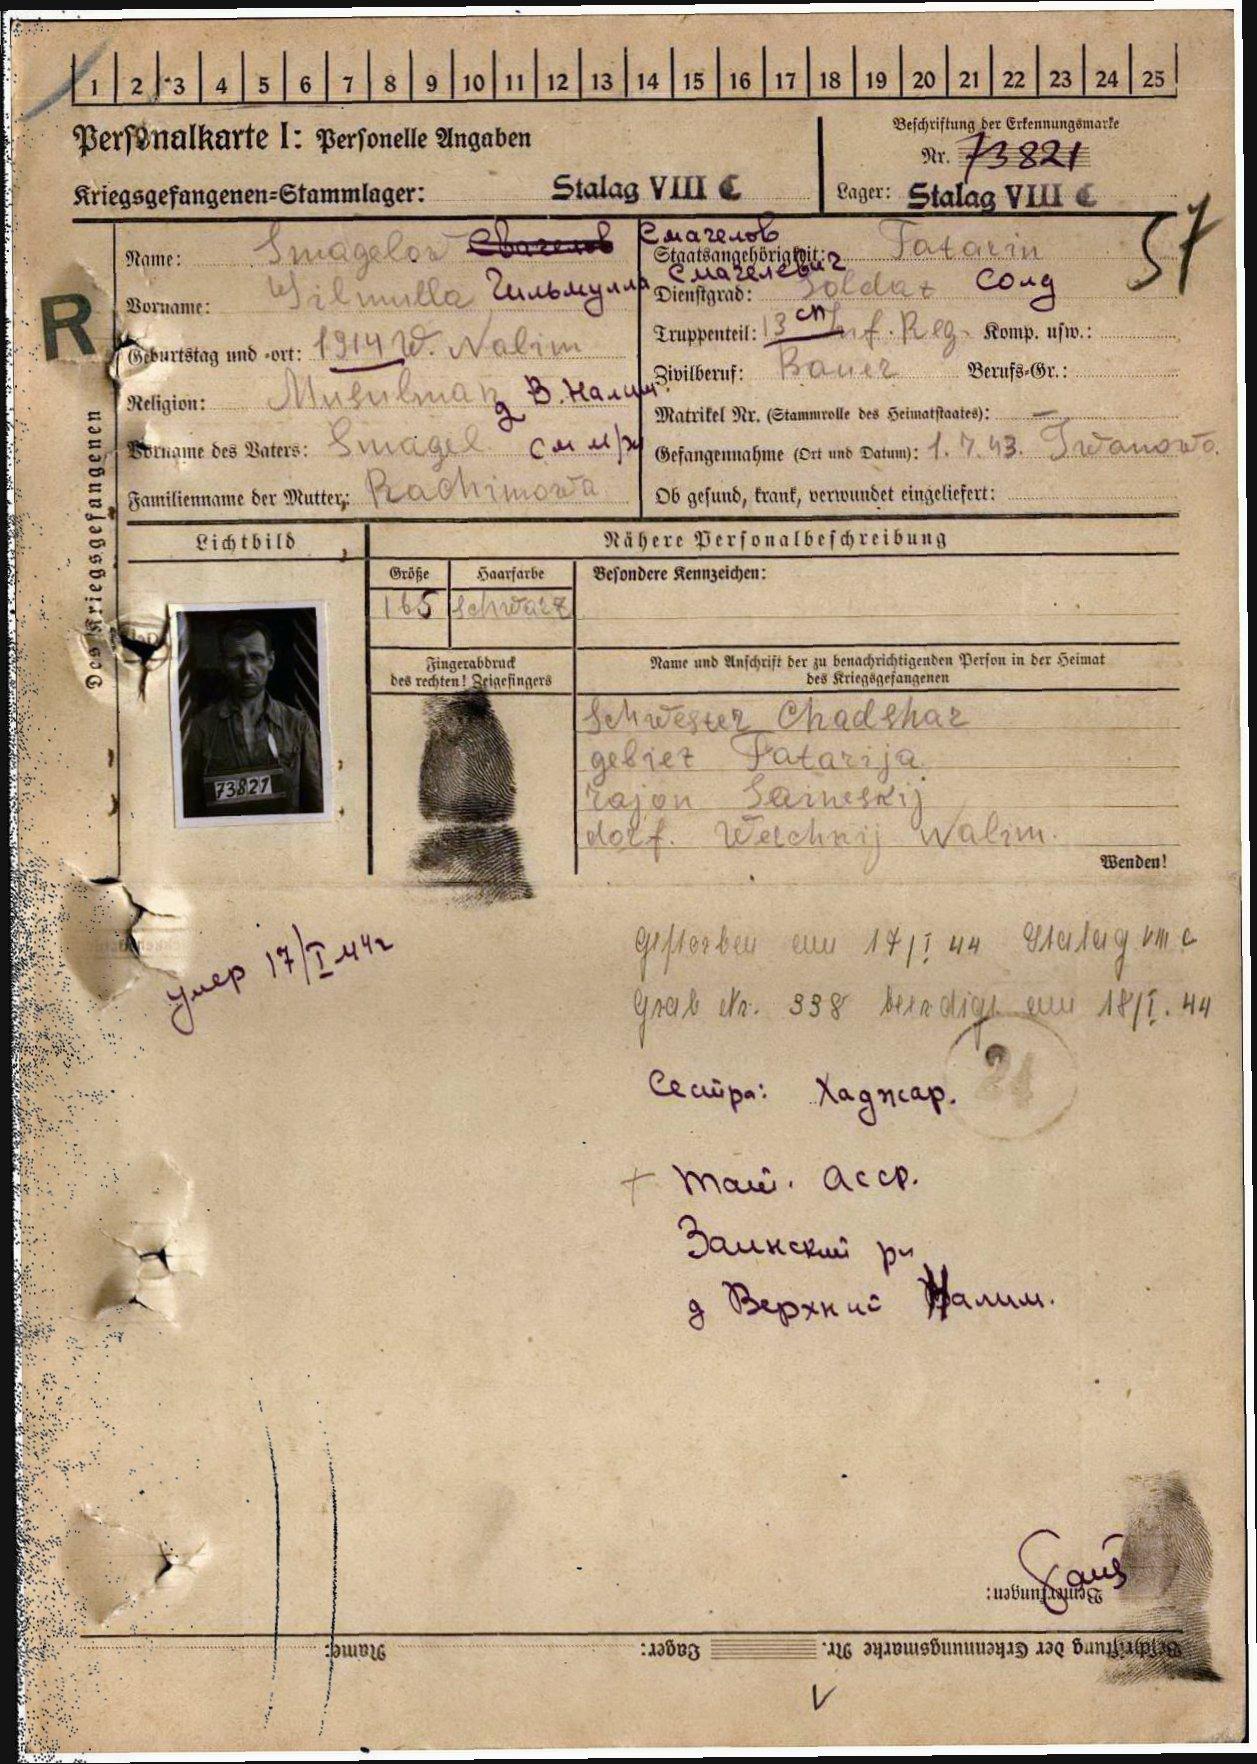 1 2 3 4 5 6 7 8 9 10 11 12 13 14 15 16 17 18 19 20 21 22 23 24 25
Personalkarte I: Personelle Angaben
Beschriftung der Erkennungsmarke
Nr. 73821
Kriegsgefangenen-Stammlager: Stalag VIII C
Lager: Stalag VIII C
57
R
Des Kriegsgefangenen
Name: Smagelow Смагелов
Vorname: Gilmulla Гильмулла Смагелевич
Geburtstag und -ort: 1914 W. Nalim
Religion: Musulman д В. Налим
Vorname des Vaters: Smagel
Familienname der Mutter: Rachimowa
Staatsangehörigkeit: Tatarin
Dienstgrad: Soldat Солд
Truppenteil: 13 сп Inf. Reg. Komp. usw.:
Zivilberuf: Bauer Berufs-Gr.:
Matrikel Nr. (Stammrolle des Heimatstaates): —
Gefangennahme (Ort und Datum): 1.7.43. Iwanowo.
Ob gesund, krank, verwundet eingeliefert:
Lichtbild
Nähere Personalbeschreibung
Größe Haarfarbe Besondere Kennzeichen:
165 schwarz
Fingerabdruck
des rechten! Zeigefingers
Name und Anschrift der zu benachrichtigenden Person in der Heimat
des Kriegsgefangenen
73821
Schwester Chadshar
gebiet Tatarija
rajon Sainskij
dorf. Werchnij Nalim.
Wenden!
умер 17/I 44г
Gestorben am 17/I 44 Stalag VIII C
Grab Nr. 338 beerdigt am 18/I. 44
21
Сестра: Хаджар.
+ Тат. Асср.
Заинский рн
д Верхний Налим.
Bemerkungen:
Name: Lager: Beschriftung der Erkennungsmarke Nr.
V